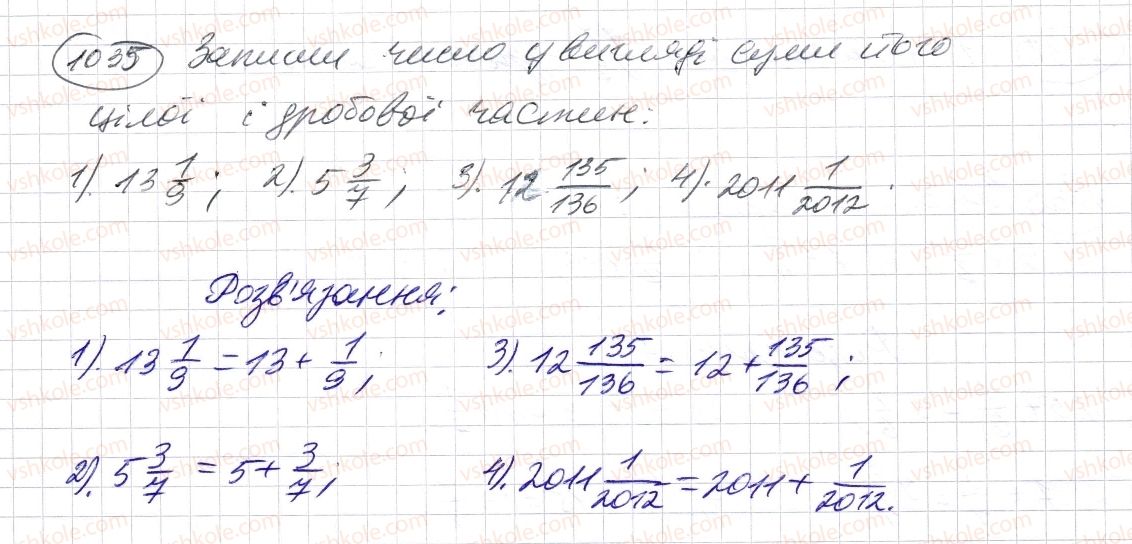 1035 Запиши число у вигляді суми його
цілої і дробової частин:
1). 13 1/9 ; 2). 5 3/7 ; 3). 12 135/136 ; 4). 2011 1/2012 .
Розв'язання:
1). 13 1/9 = 13 + 1/9 ; 3). 12 135/136 = 12 + 135/136 ;
2). 5 3/7 = 5 + 3/7 ; 4). 2011 1/2012 = 2011 + 1/2012 .